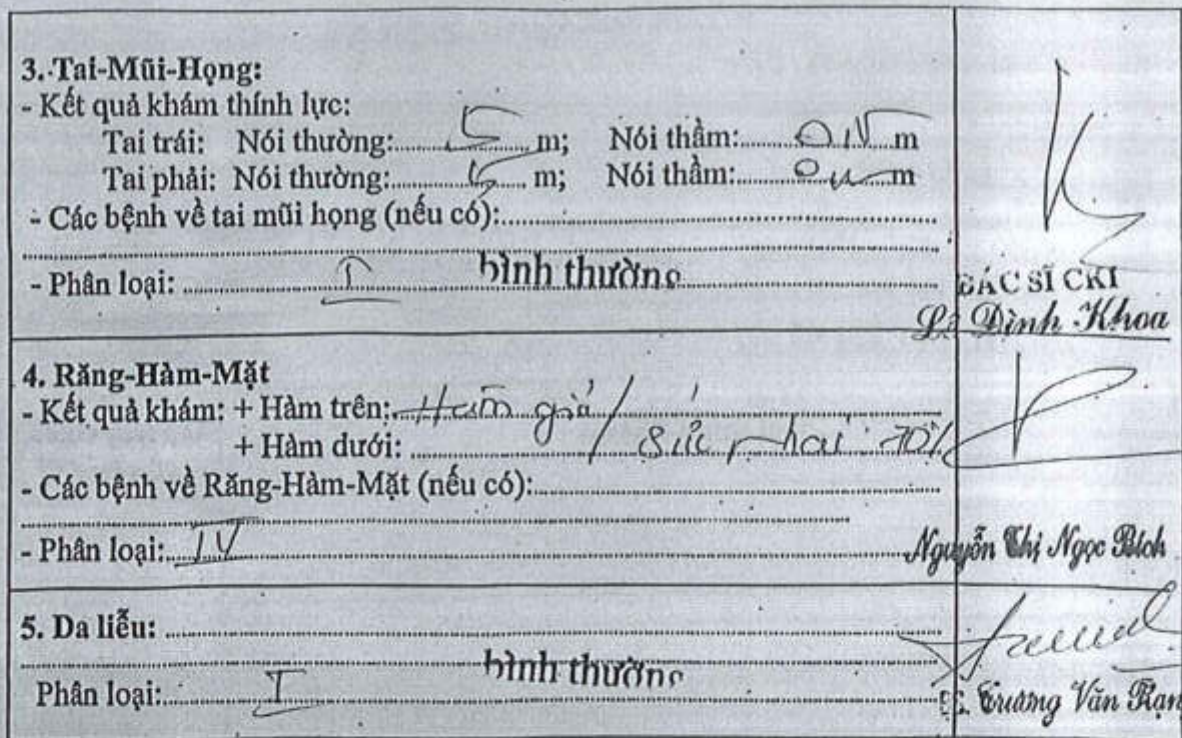 3. Tai-Mũi-Họng:
- Kết quả khám thính lực:
Tai trái: Nói thường: 5 m; Nói thầm: 0,5 m
Tai phải: Nói thường: 5 m; Nói thầm: 0,5 m
- Các bệnh về tai mũi họng (nếu có):
- Phân loại: I bình thường
BÁC SĨ CKI
Lê Đình Khoa
4. Răng-Hàm-Mặt
- Kết quả khám: + Hàm trên: Hàm giả /
+ Hàm dưới: sức nhai 70%
- Các bệnh về Răng-Hàm-Mặt (nếu có):
- Phân loại: IV
Nguyễn Thị Ngọc Bích
5. Da liễu:
Phân loại: I bình thường
BS. Trương Văn Rạng